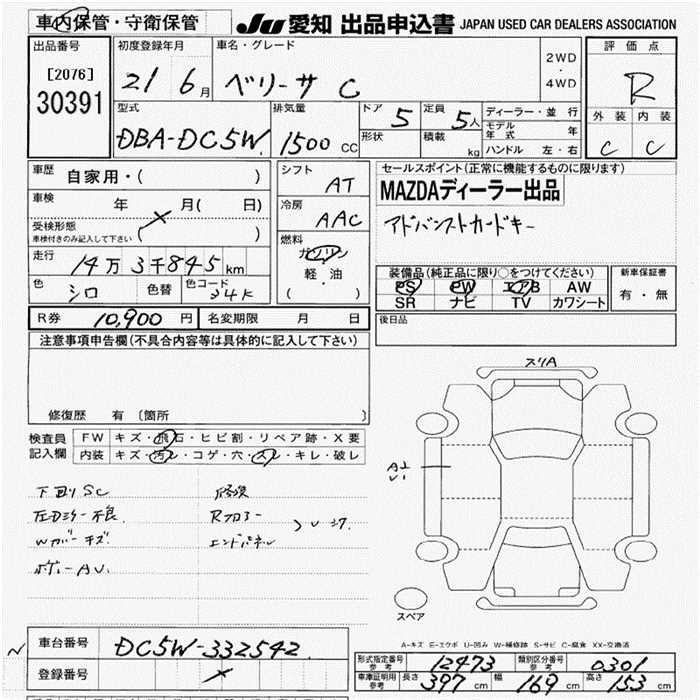 車内保管・守衛保管 JU 愛知 出品申込書 JAPAN USED CAR DEALERS ASSOCIATION
出品番号 初度登録年月 車名・グレード 2WD・4WD 評価点
[2076] 21 6月 ベリーサ C R
30391 外装 内装
型式 排気量 ドア 5 定員 5人 ディーラー・並行
DBA-DC5W 1500 CC 形状 積載 kg モデル年式 年 C C
ハンドル 左・右
車歴 自家用・( ) シフト AT セールスポイント(正常に機能するものに限ります)
車検 年 月( 日) 冷房 AAC MAZDAディーラー出品
受検形態 ( ) アドバンストカードキー
車検付きのみ記入して下さい
燃料 ガソリン
走行 14万3千845km 軽・油
色 シロ 色替 色コード 34K ( )
装備品(純正品に限り〇をつけてください) 新車保証書
PS PW エアB AW 有・無
SR ナビ TV カワシート
R券 10,900 円 名変期限 月 日 後日品
注意事項申告欄(不具合内容等は具体的に記入して下さい)
修復歴 有 〔箇所
検査員 FW キズ・飛石・ヒビ割・リペア跡・X要
記入欄 内装 キズ・汚レ・コゲ・穴・スレ・キレ・破レ
スリA
A1
下回りSC 修復
左Dミラー不良
Wカバーキズ エンドパネル
ボディーAU
スペア
A-キズ E-エクボ U-凹み W-補修跡 S-サビ C-腐食 XX-交換済
車台番号 DC5W-332542
登録番号
形式指定番号 参考 12473 類別区分番号 参考 0301
車庫証明用 参考 長さ 397 cm 幅 169 cm 高さ 153 cm